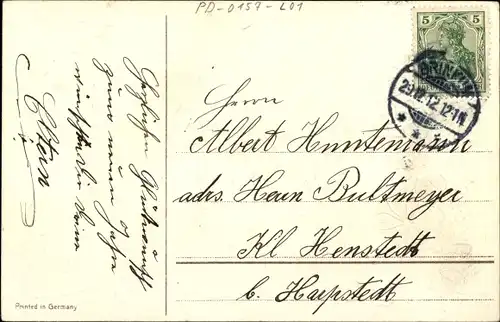 PD-0157-L01
5 5
29.12.12.12-1N
Herrn
Albert Huntemann
adrs. Herrn Bultmeyer
Kl Henstedt
b. Harpstedt
Herzlichen Glückwunsch
zum neuen Jahre
wünschen Dir Deine
Eltern
Printed in Germany